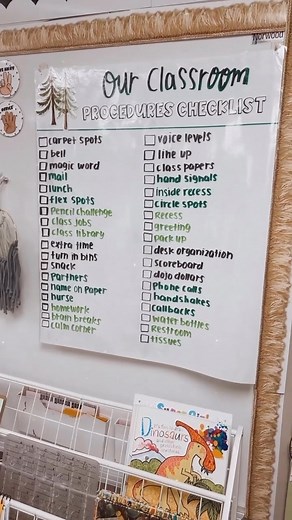 Norwood
our classroom
PROCEDURES CHECKLIST
carpet spots
bell
magic word
mail
lunch
flex spots
pencil challenge
class jobs
class library
extra time
turn in bins
snack
partners
name on paper
nurse
homework
brain breaks
calm corner
voice levels
line up
class papers
hand signals
inside recess
circle spots
recess
greeting
pack up
desk organization
scoreboard
dojo dollars
phone calls
handshakes
callbacks
water bottles
restroom
tissues
Dinosaurs